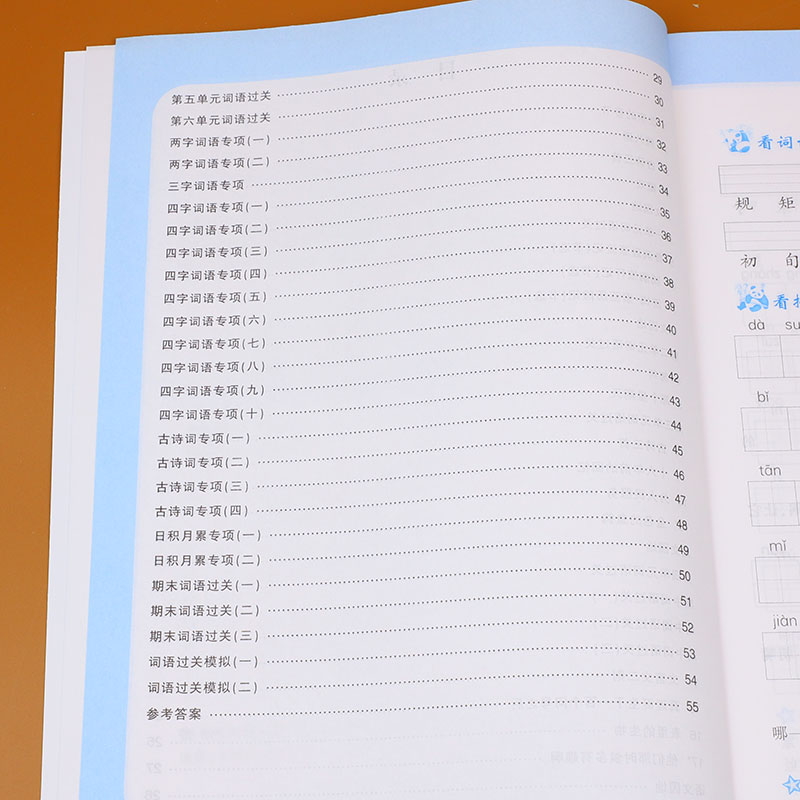 第五单元词语过关 29
第六单元词语过关 30
两字词语专项(一) 31
两字词语专项(二) 32
三字词语专项 33
四字词语专项(一) 34
四字词语专项(二) 35
四字词语专项(三) 36
四字词语专项(四) 37
四字词语专项(五) 38
四字词语专项(六) 39
四字词语专项(七) 40
四字词语专项(八) 41
四字词语专项(九) 42
四字词语专项(十) 43
古诗词专项(一) 44
古诗词专项(二) 45
古诗词专项(三) 46
古诗词专项(四) 47
日积月累专项(一) 48
日积月累专项(二) 49
期末词语过关(一) 50
期末词语过关(二) 51
期末词语过关(三) 52
词语过关模拟(一) 53
词语过关模拟(二) 54
参考答案 55
看词
规 矩
初 旬
看
dà su
bǐ
tān
mǐ
jiàn
哪